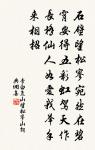 石壁望松寥宛然在碧
霄安得五彩虹駕天作
長橋仙人如愛我舉手
來相招
李白焦山望松寥山詩